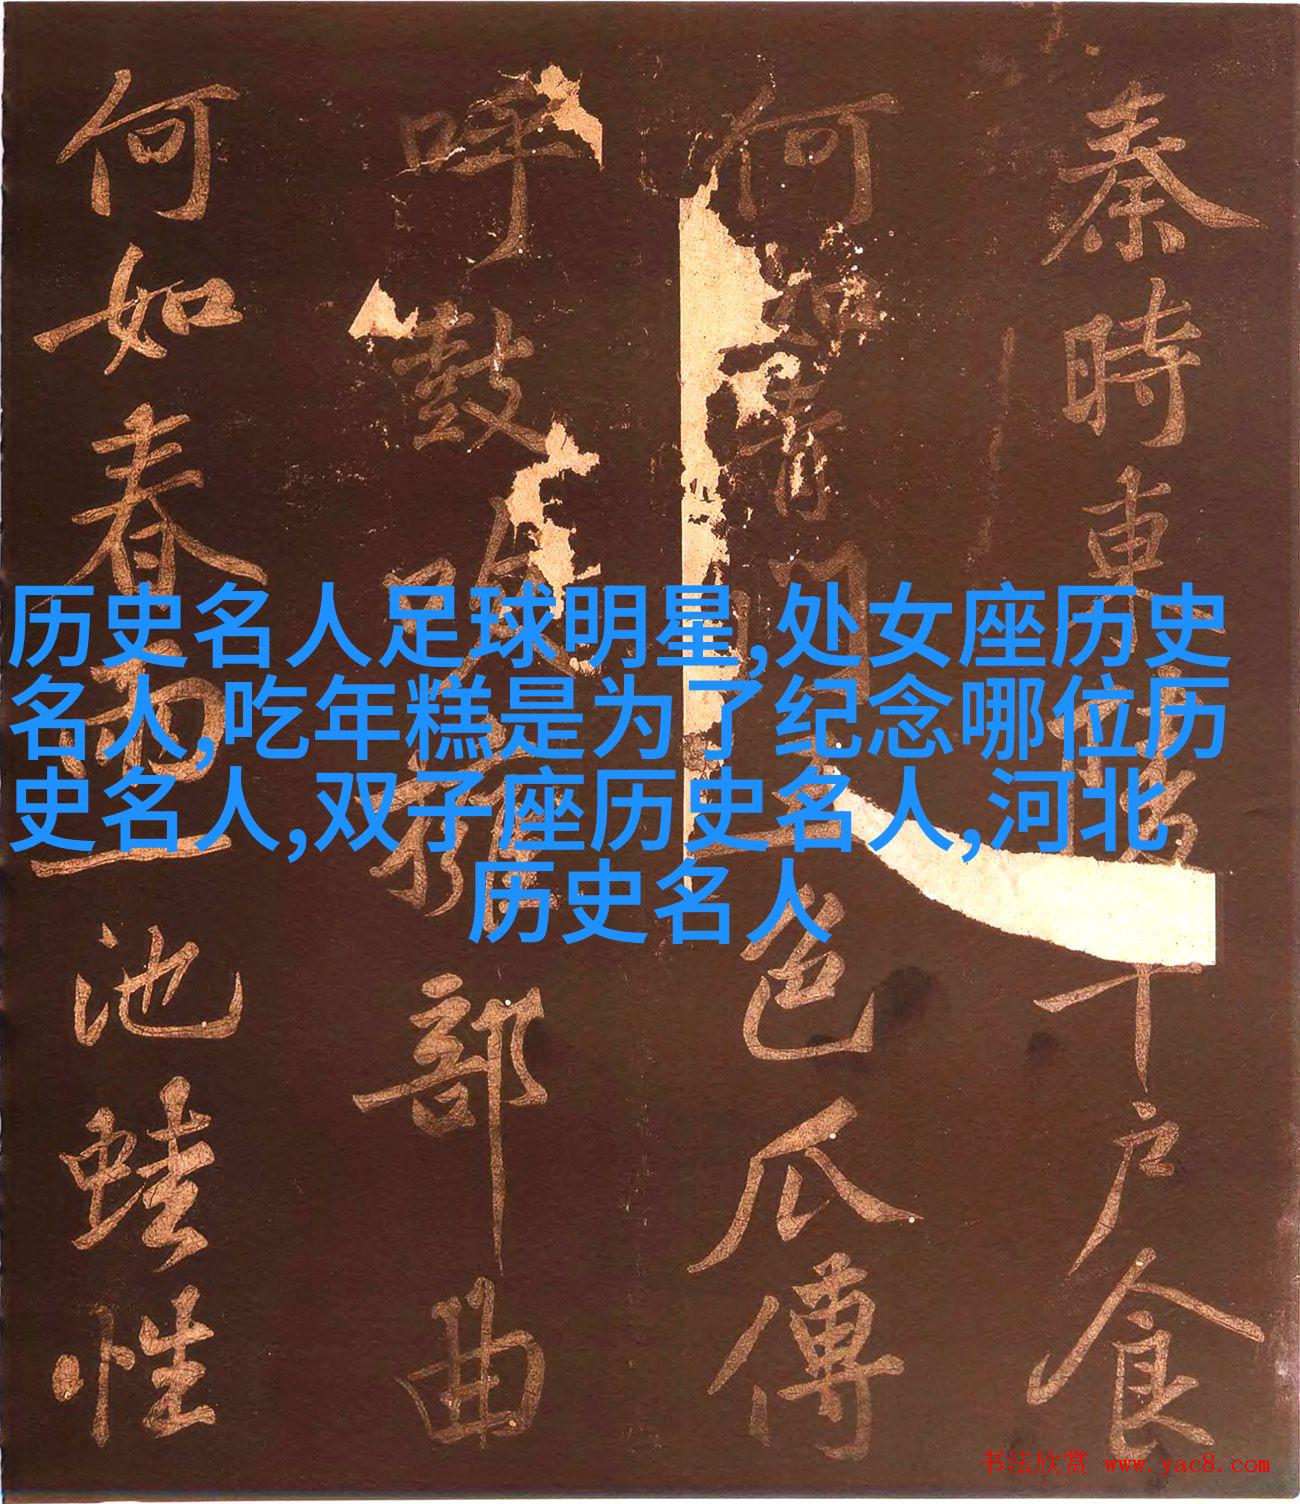 秦時東陵千戶食
何如青門五色瓜傳
呼鼓吹擁部曲
何如春雨一池蛙性
历史名人足球明星,处女座历史
名人,吃年糕是为了纪念哪位历
史名人,双子座历史名人,河北
历史名人
书法欣赏 www.yac8.com